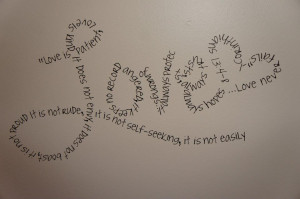 "Love is patient,
Love is kind
it does not envy, it does not boast, it is not proud It is not rude, it is not self-seeking, it is not easily
angered, it keeps
no record
of wrongs
always protec
always
hopes ...Love never
fails"
Corinthians
13:4-8